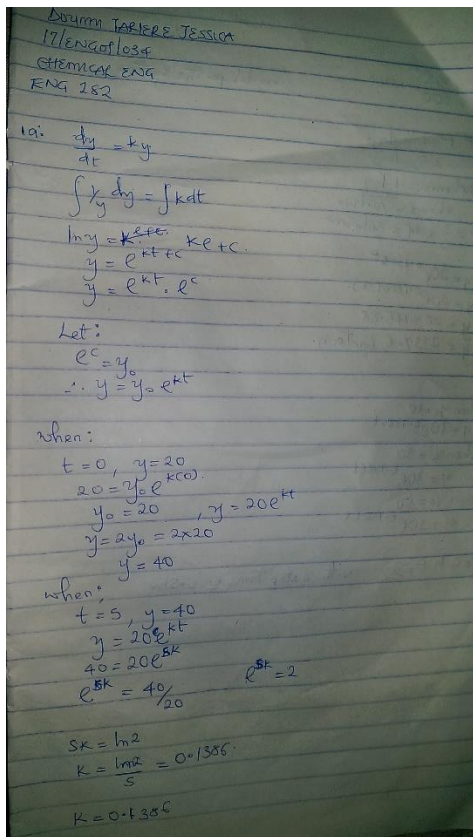 TARIERE JESSICA
17/ENG01/034
CHEMICAL ENG
ENG 282
1a: dy/dt = ky
∫ 1/y dy = ∫ kdt
lny = ke+c
y = e^kt+c
y = e^kt . e^c
Let:
e^c = y₀
∴ y = y₀ e^kt
when:
t = 0, y = 20
20 = y₀ e^k(0).
y₀ = 20 , y = 20e^kt
y = 2y₀ = 2x20
y = 40
when;
t = 5, y = 40
y = 20e^kt
40 = 20e^5k
e^5k = 40/20 e^5k = 2
5k = ln2
k = ln2/5 = 0.1386.
K = 0.1386